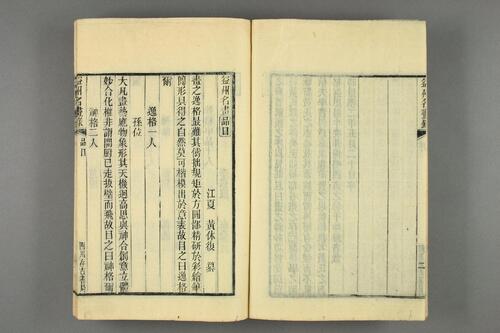 益州名畫品目
江夏 黃休復 纂
畫之逸格最難其儔拙規矩於方圓鄙精研於彩繪筆
簡形具得之自然莫可楷模出於意表故目之曰逸格
爾
逸格一人
孫位
大凡畫藝應物象形其天機迥高思與神合創意立體
妙合化權非謂開厨已走拔壁而飛故目之曰神格爾
神格二人
益州名畫錄 品目